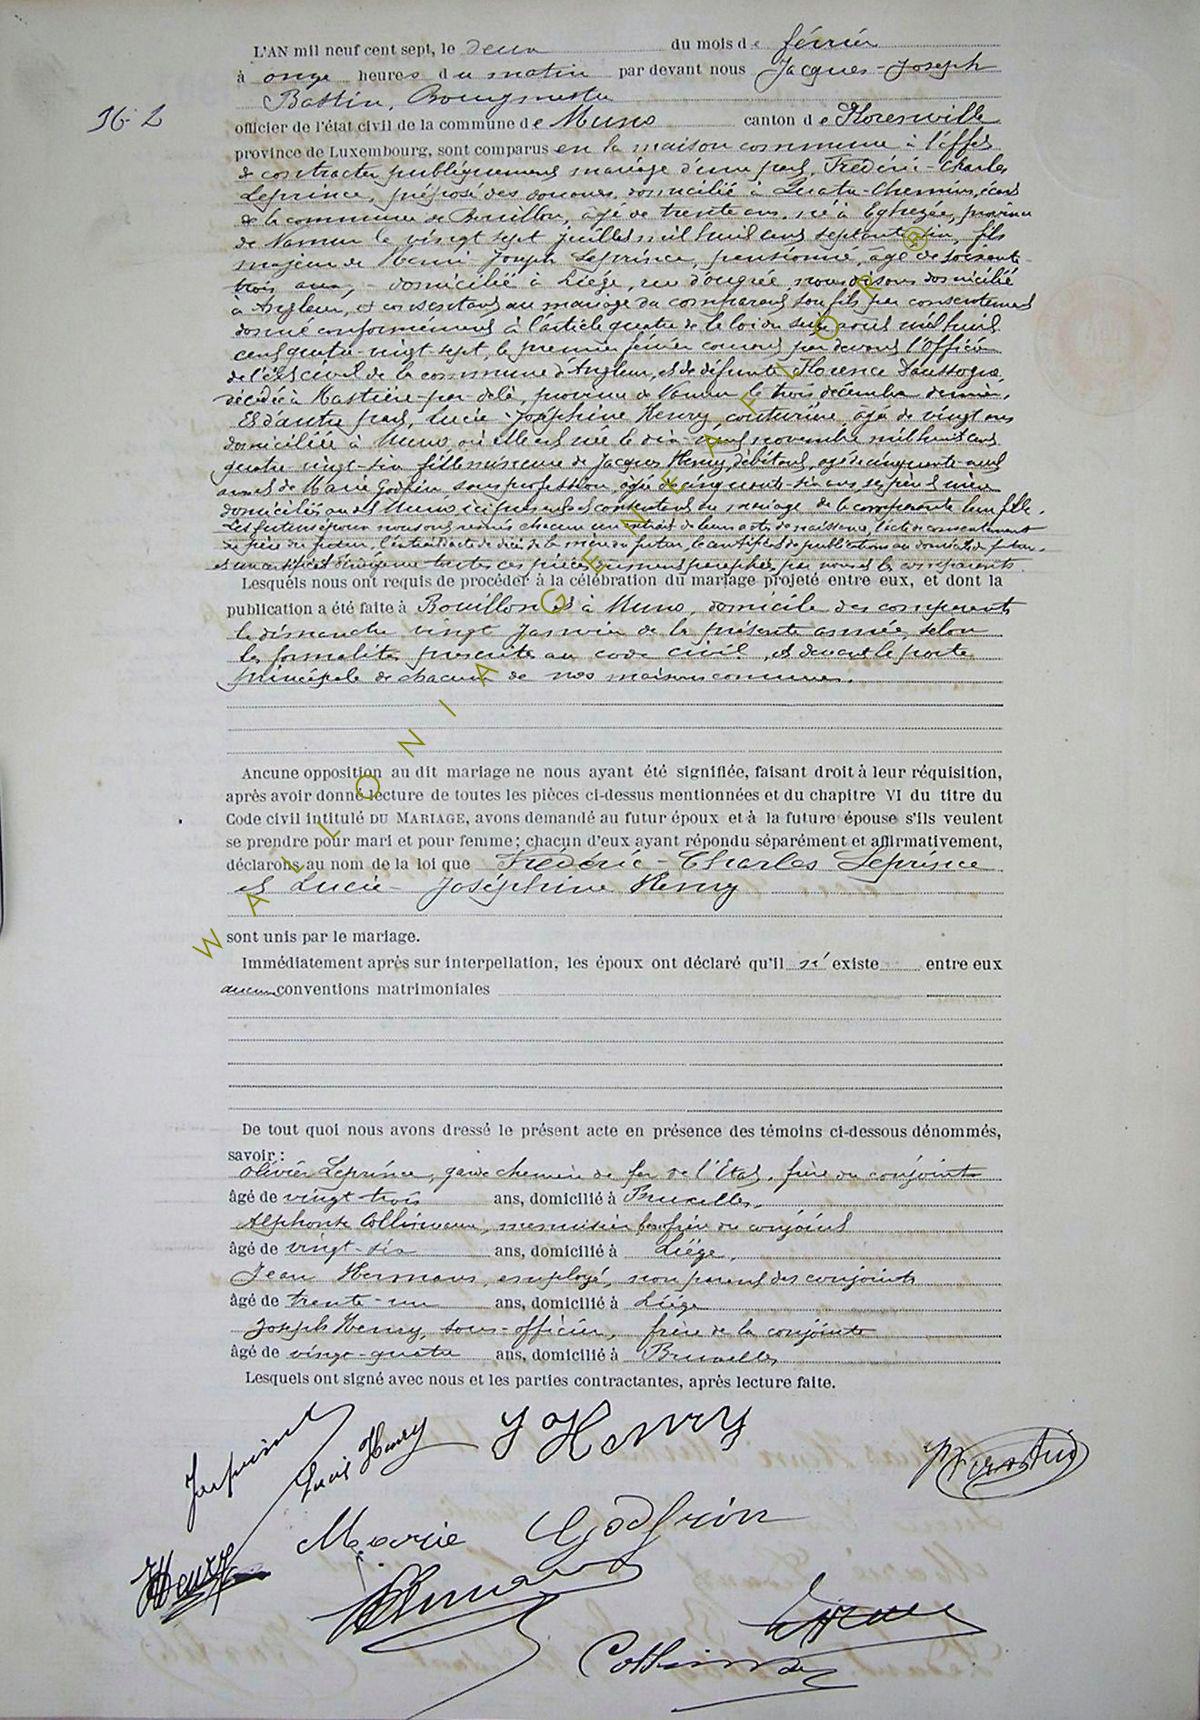 L'AN mil neuf cent sept, le deux du mois de février
à onze heures du matin par devant nous Jacques-Joseph
Bastin, Bourgmestre
36-2
officier de l'état civil de la commune de Muno canton de Florenville
province de Luxembourg, sont comparus en la maison commune à l'effet
de contracter publiquement mariage d'une part, Frédéric-Charles
Leprince, préposé des douanes, domicilié à Quatre-Chemins, écart
de la commune de Bouillon, âgé de trente ans, né à Eghezée, province
de Namur le vingt sept juillet mil huit cent septante six, fils
majeur de Henri Joseph Leprince, pensionné, âgé de soixante
trois ans, domicilié à Liége, rue d'ougrée, nous disons domicilié
à Angleur, et consentant au mariage du comparant son fils par consentement
donné conformément à l'article quatre de la loi du seize août mil huit
cent quatre-vingt sept, le premier février courant par devant l'Officier
de l'état civil de la commune d'Angleur, et de défunte Florence
décédée à Hastière-par-delà, province de Namur le trois décembre dernier,
Et d'autre part, Lucie-Joséphine Henry, couturière, âgée de vingt ans
domiciliée à Muno où elle est née le dix neuf novembre mil huit cent
quatre vingt-six fille mineure de Jacques Henry, débitant, âgé de cinquante neuf
ans et de Marie Godfrin sans profession, âgée de cinquante-six ans, ses père et mère
domiciliés audit Muno ici présents et consentants au mariage de la comparante leur fille.
Les futurs époux nous ont remis chacun un extrait de leurs actes de naissance, l'acte de consentement
du père du futur, l'extrait d'acte de décès de la mère du futur, le certificat de publication au domicile du futur,
et un certificat toutes ces pièces dûment paraphées par nous et les comparants.
Lesquels nous ont requis de procéder à la célébration du mariage projeté entre eux, et dont la
publication a été faite à Bouillon et à Muno, domicile des comparants
le dimanche vingt Janvier de la présente année, selon
les formalités prescrites au code civil, et devant la porte
principale de chacune de nos maisons communes.
Aucune opposition au dit mariage ne nous ayant été signifiée, faisant droit à leur réquisition,
après avoir donné lecture de toutes les pièces ci-dessus mentionnées et du chapitre VI du titre du
Code civil intitulé DU MARIAGE, avons demandé au futur époux et à la future épouse s'ils veulent
se prendre pour mari et pour femme; chacun d'eux ayant répondu séparément et affirmativement,
déclarons au nom de la loi que Frédéric-Charles Leprince
et Lucie-Joséphine Henry
sont unis par le mariage.
Immédiatement après sur interpellation, les époux ont déclaré qu'il n'existe entre eux
aucune conventions matrimoniales
De tout quoi nous avons dressé le présent acte en présence des témoins ci-dessous dénommés,
savoir :
Olivier Leprince, garde chemin de fer de l'Etat, frère du conjoint
âgé de vingt trois ans, domicilié à Bruxelles,
Alphonse Collineau, menuisier beau-frère du conjoint
âgé de vingt-six ans, domicilié à Liége,
Jean Hermans, employé, non parent des conjoints
âgé de trente-un ans, domicilié à Liége
Joseph Henry, sous-officier, frère de la conjointe
âgé de vingt-quatre ans, domicilié à Bruxelles
Lesquels ont signé avec nous et les parties contractantes, après lecture faite.
Henry
J Henry
Marie Godfrin
WALLONIA GENEAFLOR ®